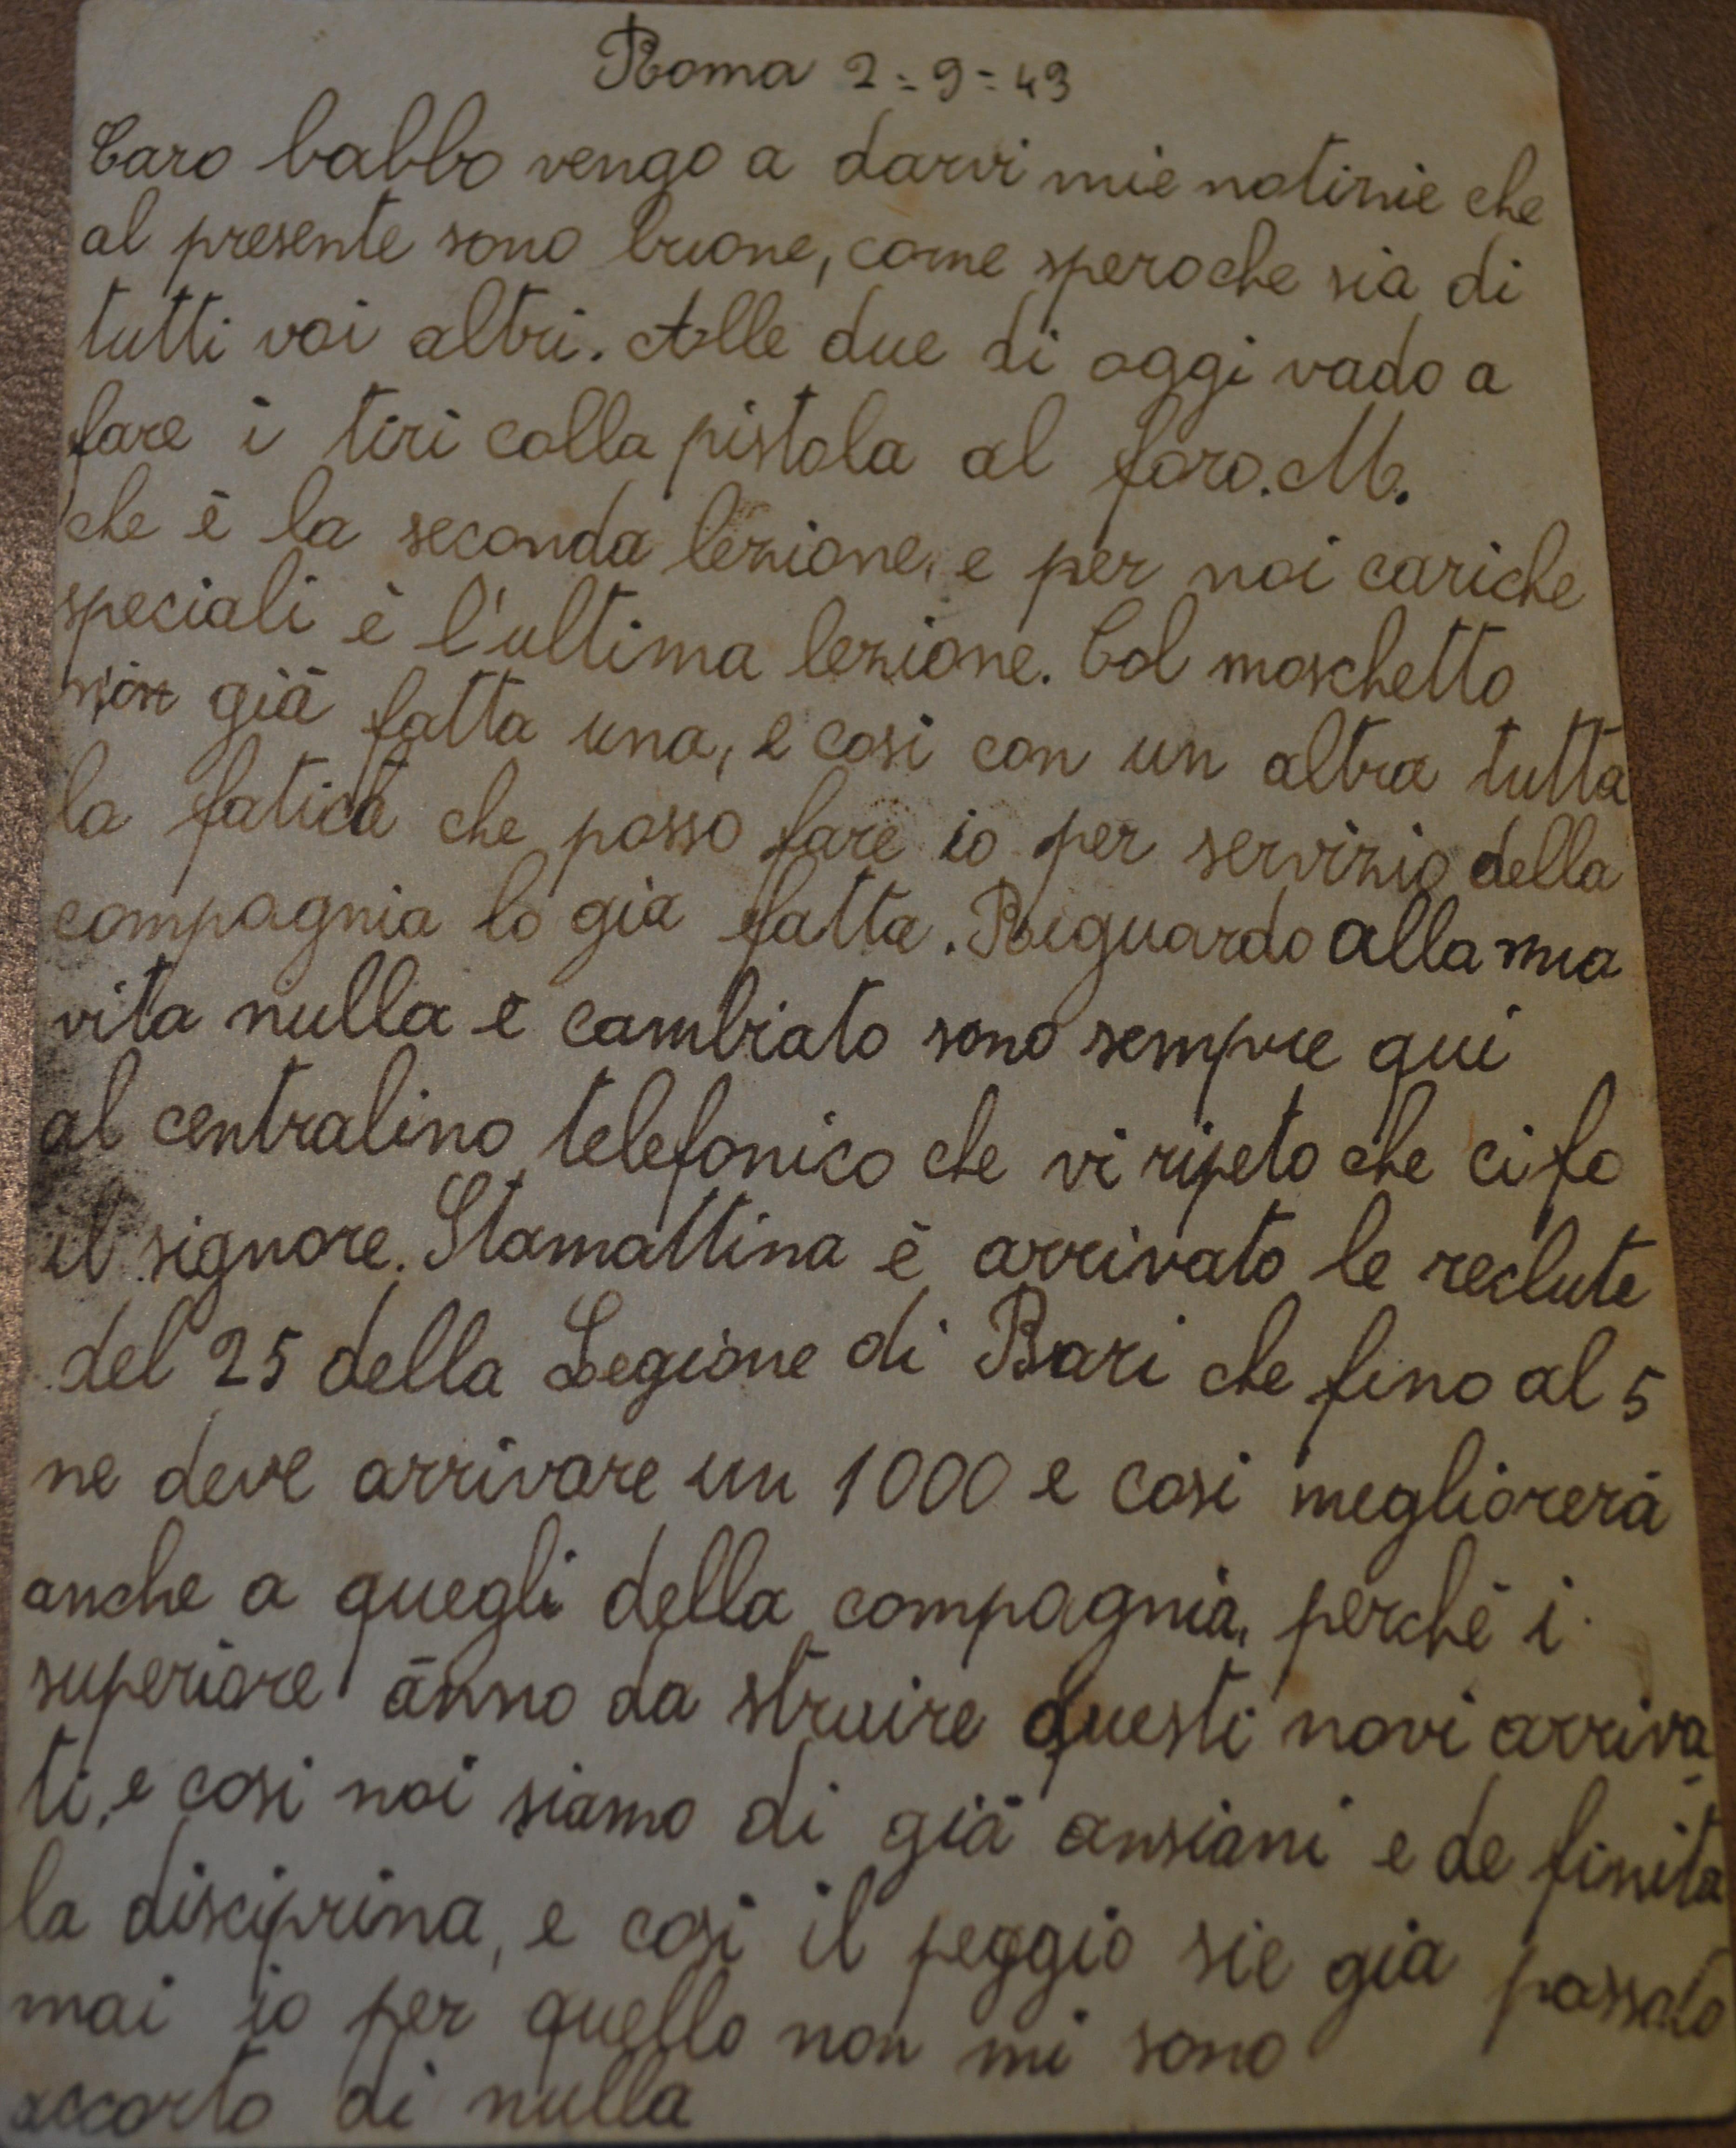 Roma 2=9=43
Caro babbo vengo a darvi mie notizie che
al presente sono buone, come spero che sia di
tutti voi altri. Alle due di oggi vado a
fare i tiri colla pistola al foro. M.
che è la seconda lezione, e per noi cariche
speciali è l'ultima lezione. Col moschetto
già fatta una, e cosi con un altra tutta
la fatica che posso fare io per servizio della
compagnia lo già fatta. Riguardo alla mia
vita nulla è cambiato sono sempre qui
al centralino telefonico che vi ripeto che ci fo
il signore. Stamattina è arrivato le reclute
del 25 della Legione di Bari che fino al 5
ne deve arrivare un 1000 e cosi megliorerà
anche a quegli della compagnia, perché i
superiore ànno da struire questi novi arriva
ti, e cosi noi siamo di già ansiani e de finita
la disciprina, e cosi il peggio sie già passato
mai io per quello non mi sono
accorto di nulla